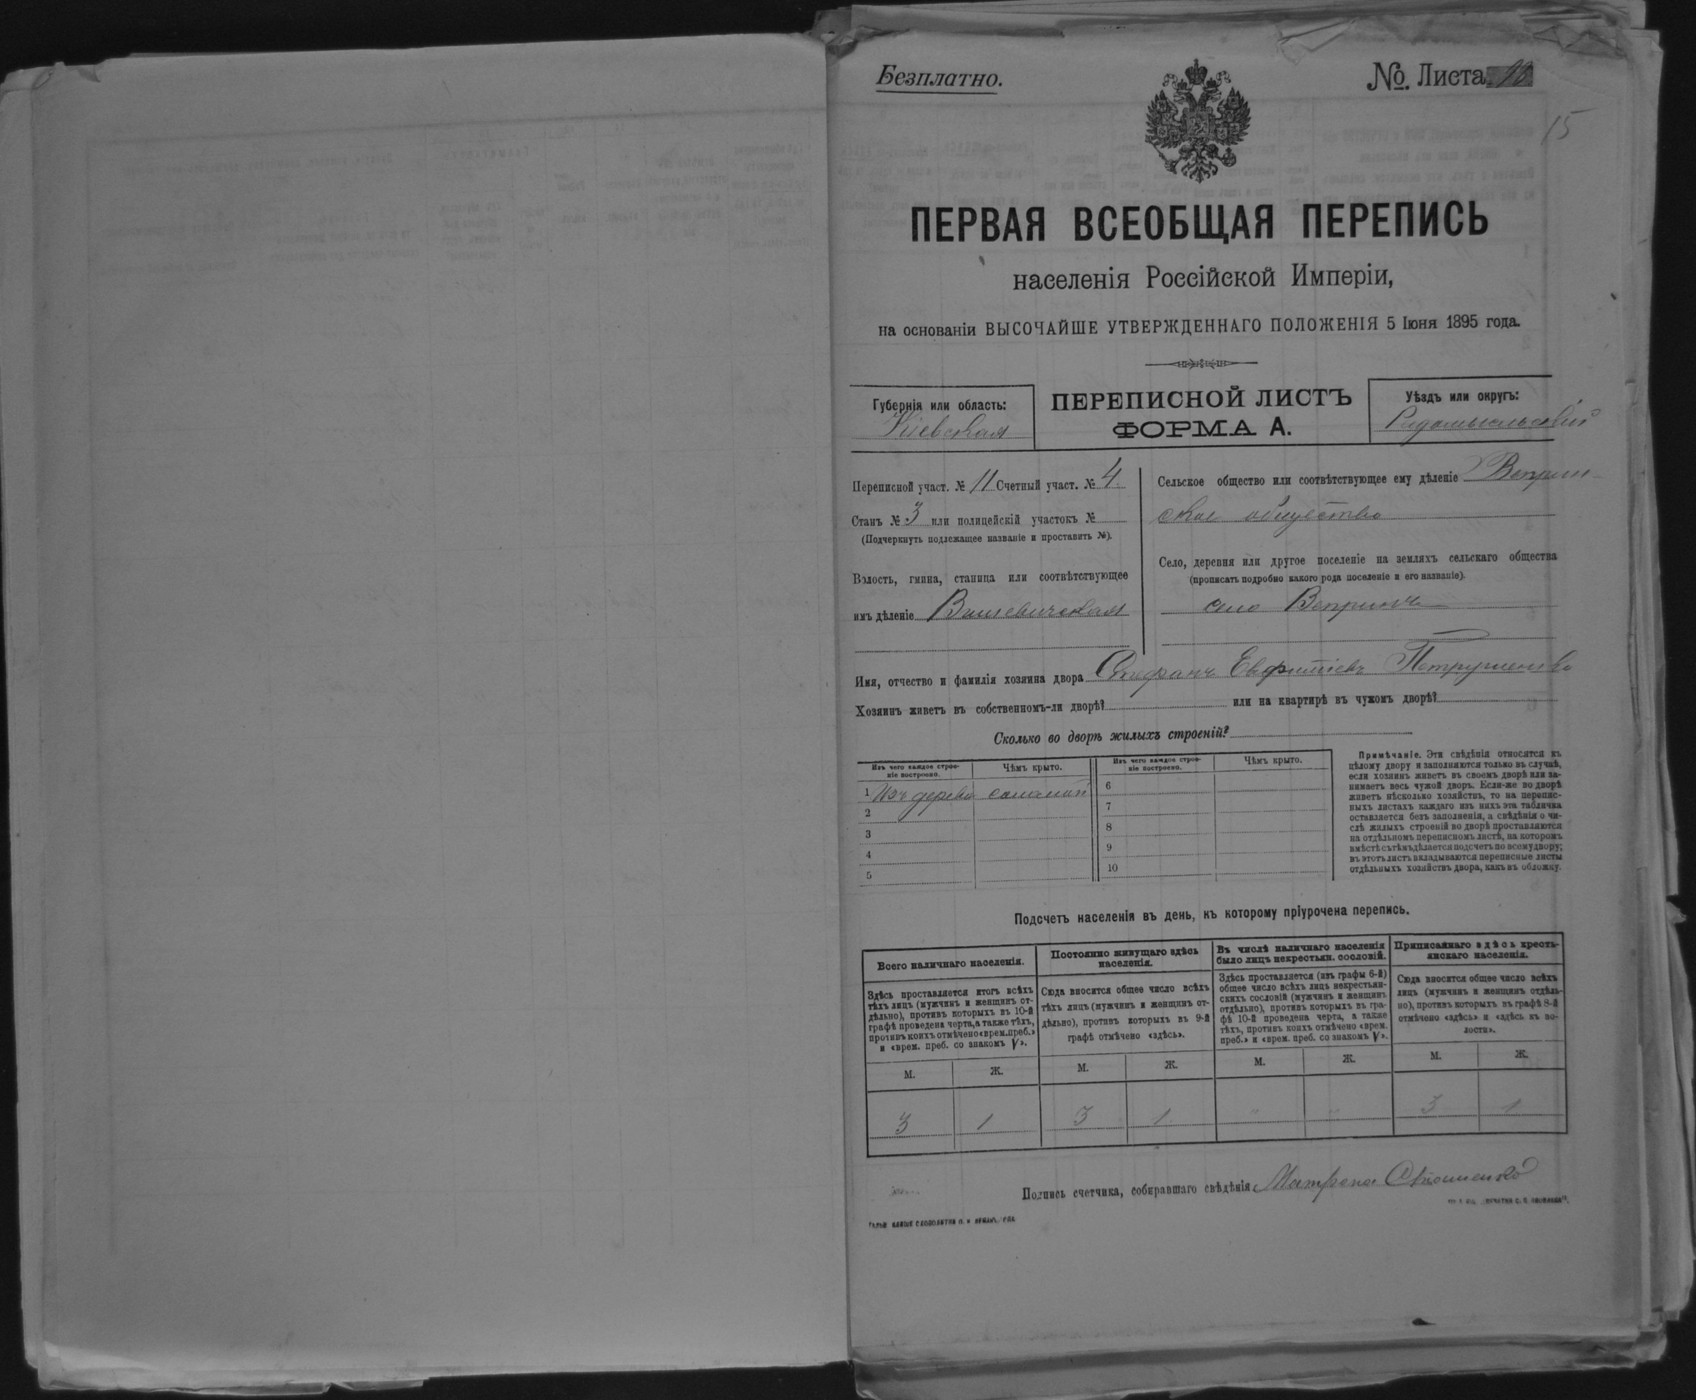 Безплатно.
№ Листа
15
ПЕРВАЯ ВСЕОБЩАЯ ПЕРЕПИСЬ
населенія Россійской Имперіи,
на основаніи ВЫСОЧАЙШЕ УТВЕРЖДЕННАГО ПОЛОЖЕНІЯ 5 Іюня 1895 года.
Губернія или область:
Кіевская
ПЕРЕПИСНОЙ ЛИСТЪ
ФОРМА А.
Уѣздъ или округъ:
Радомысльскій
Переписной участ. № 11 Счетный участ. № 4
Станъ № 3 или полицейскій участокъ №
(Подчеркнуть подлежащее названіе и проставить №).
Волость, гмина, станица или соотвѣтствующее
имъ дѣленіе
Сельское общество или соотвѣтствующее ему дѣленіе Веприн-
ское общество
Село, деревня или другое поселеніе на земляхъ сельскаго общества
(прописать подробно какого рода поселеніе и его названіе).
село Вепринъ
Имя, отчество и фамилія хозяина двора Стефанъ Евфиміевъ
Хозяинъ живетъ въ собственномъ-ли дворѣ? или на квартирѣ въ чужомъ дворѣ?
Сколько во дворѣ жилыхъ строеній?
Изъ чего каждое строе-
ніе построено.
Чѣмъ крыто.
1 Изъ дерева соломой
2
3
4
5
Изъ чего каждое строе-
ніе построено.
Чѣмъ крыто.
6
7
8
9
10
Примѣчаніе. Эти свѣдѣнія относятся къ
цѣлому двору и заполняются только въ случаѣ,
если хозяинъ живетъ въ своемъ дворѣ или за-
нимаетъ весь чужой дворъ. Если-же во дворѣ
живетъ нѣсколько хозяйствъ, то на перепис-
ныхъ листахъ каждаго изъ нихъ эта табличка
оставляется безъ заполненія, а свѣдѣнія о чи-
слѣ жилыхъ строеній во дворѣ проставляются
на отдѣльномъ переписномъ листѣ, на которомъ
вмѣстѣ съ тѣмъ дѣлается подсчетъ по всему двору;
въ этотъ листъ вкладываются переписные листы
отдѣльныхъ хозяйствъ двора, какъ въ обложку.
Подсчетъ населенія въ день, къ которому пріурочена перепись.
Всего наличнаго населенія.
Постоянно живущаго здѣсь
населенія.
Въ числѣ наличнаго населенія
было лицъ некрестьян. сословій.
Приписаннаго здѣсь кресть-
янскаго населенія.
Здѣсь проставляется итогъ всѣхъ
тѣхъ лицъ (мужчинъ и женщинъ от-
дѣльно), противъ которыхъ въ 10-й
графѣ проведена черта, а также тѣхъ,
противъ коихъ отмѣчено «врем. преб.»
и «врем. преб. со знакомъ V».
Сюда вносится общее число всѣхъ
тѣхъ лицъ (мужчинъ и женщинъ от-
дѣльно), противъ которыхъ въ 9-й
графѣ отмѣчено «здѣсь».
Здѣсь проставляется (изъ графы 6-й)
общее число всѣхъ лицъ некрестьян-
скихъ сословій (мужчинъ и женщинъ
отдѣльно), противъ которыхъ въ гра-
фѣ 10-й проведена черта, а также
тѣхъ, противъ коихъ отмѣчено «врем.
преб.» и «врем. преб. со знакомъ V».
Сюда вносится общее число всѣхъ
лицъ (мужчинъ и женщинъ отдѣль-
но), противъ которыхъ въ графѣ 8-й
отмѣчено «здѣсь» и «здѣсь въ во-
лости».
М. Ж. М. Ж. М. Ж. М. Ж.
3 1 3 1 " " 3 1
Подпись счетчика, собиравшаго свѣдѣнія